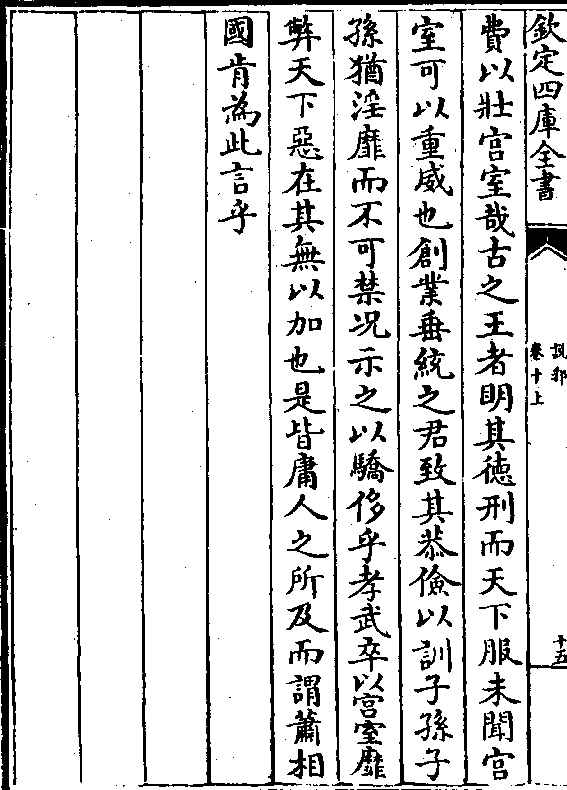 欽定四庫全書
說郛
卷十上
十五
費以壯宮室哉古之王者明其德刑而天下服未聞宮
室可以重威也創業垂統之君致其恭儉以訓子孫子
孫猶淫靡而不可禁况示之以驕侈乎孝武卒以宮室靡
弊天下惡在其無以加也是皆庸人之所及而謂蕭相
國肯為此言乎